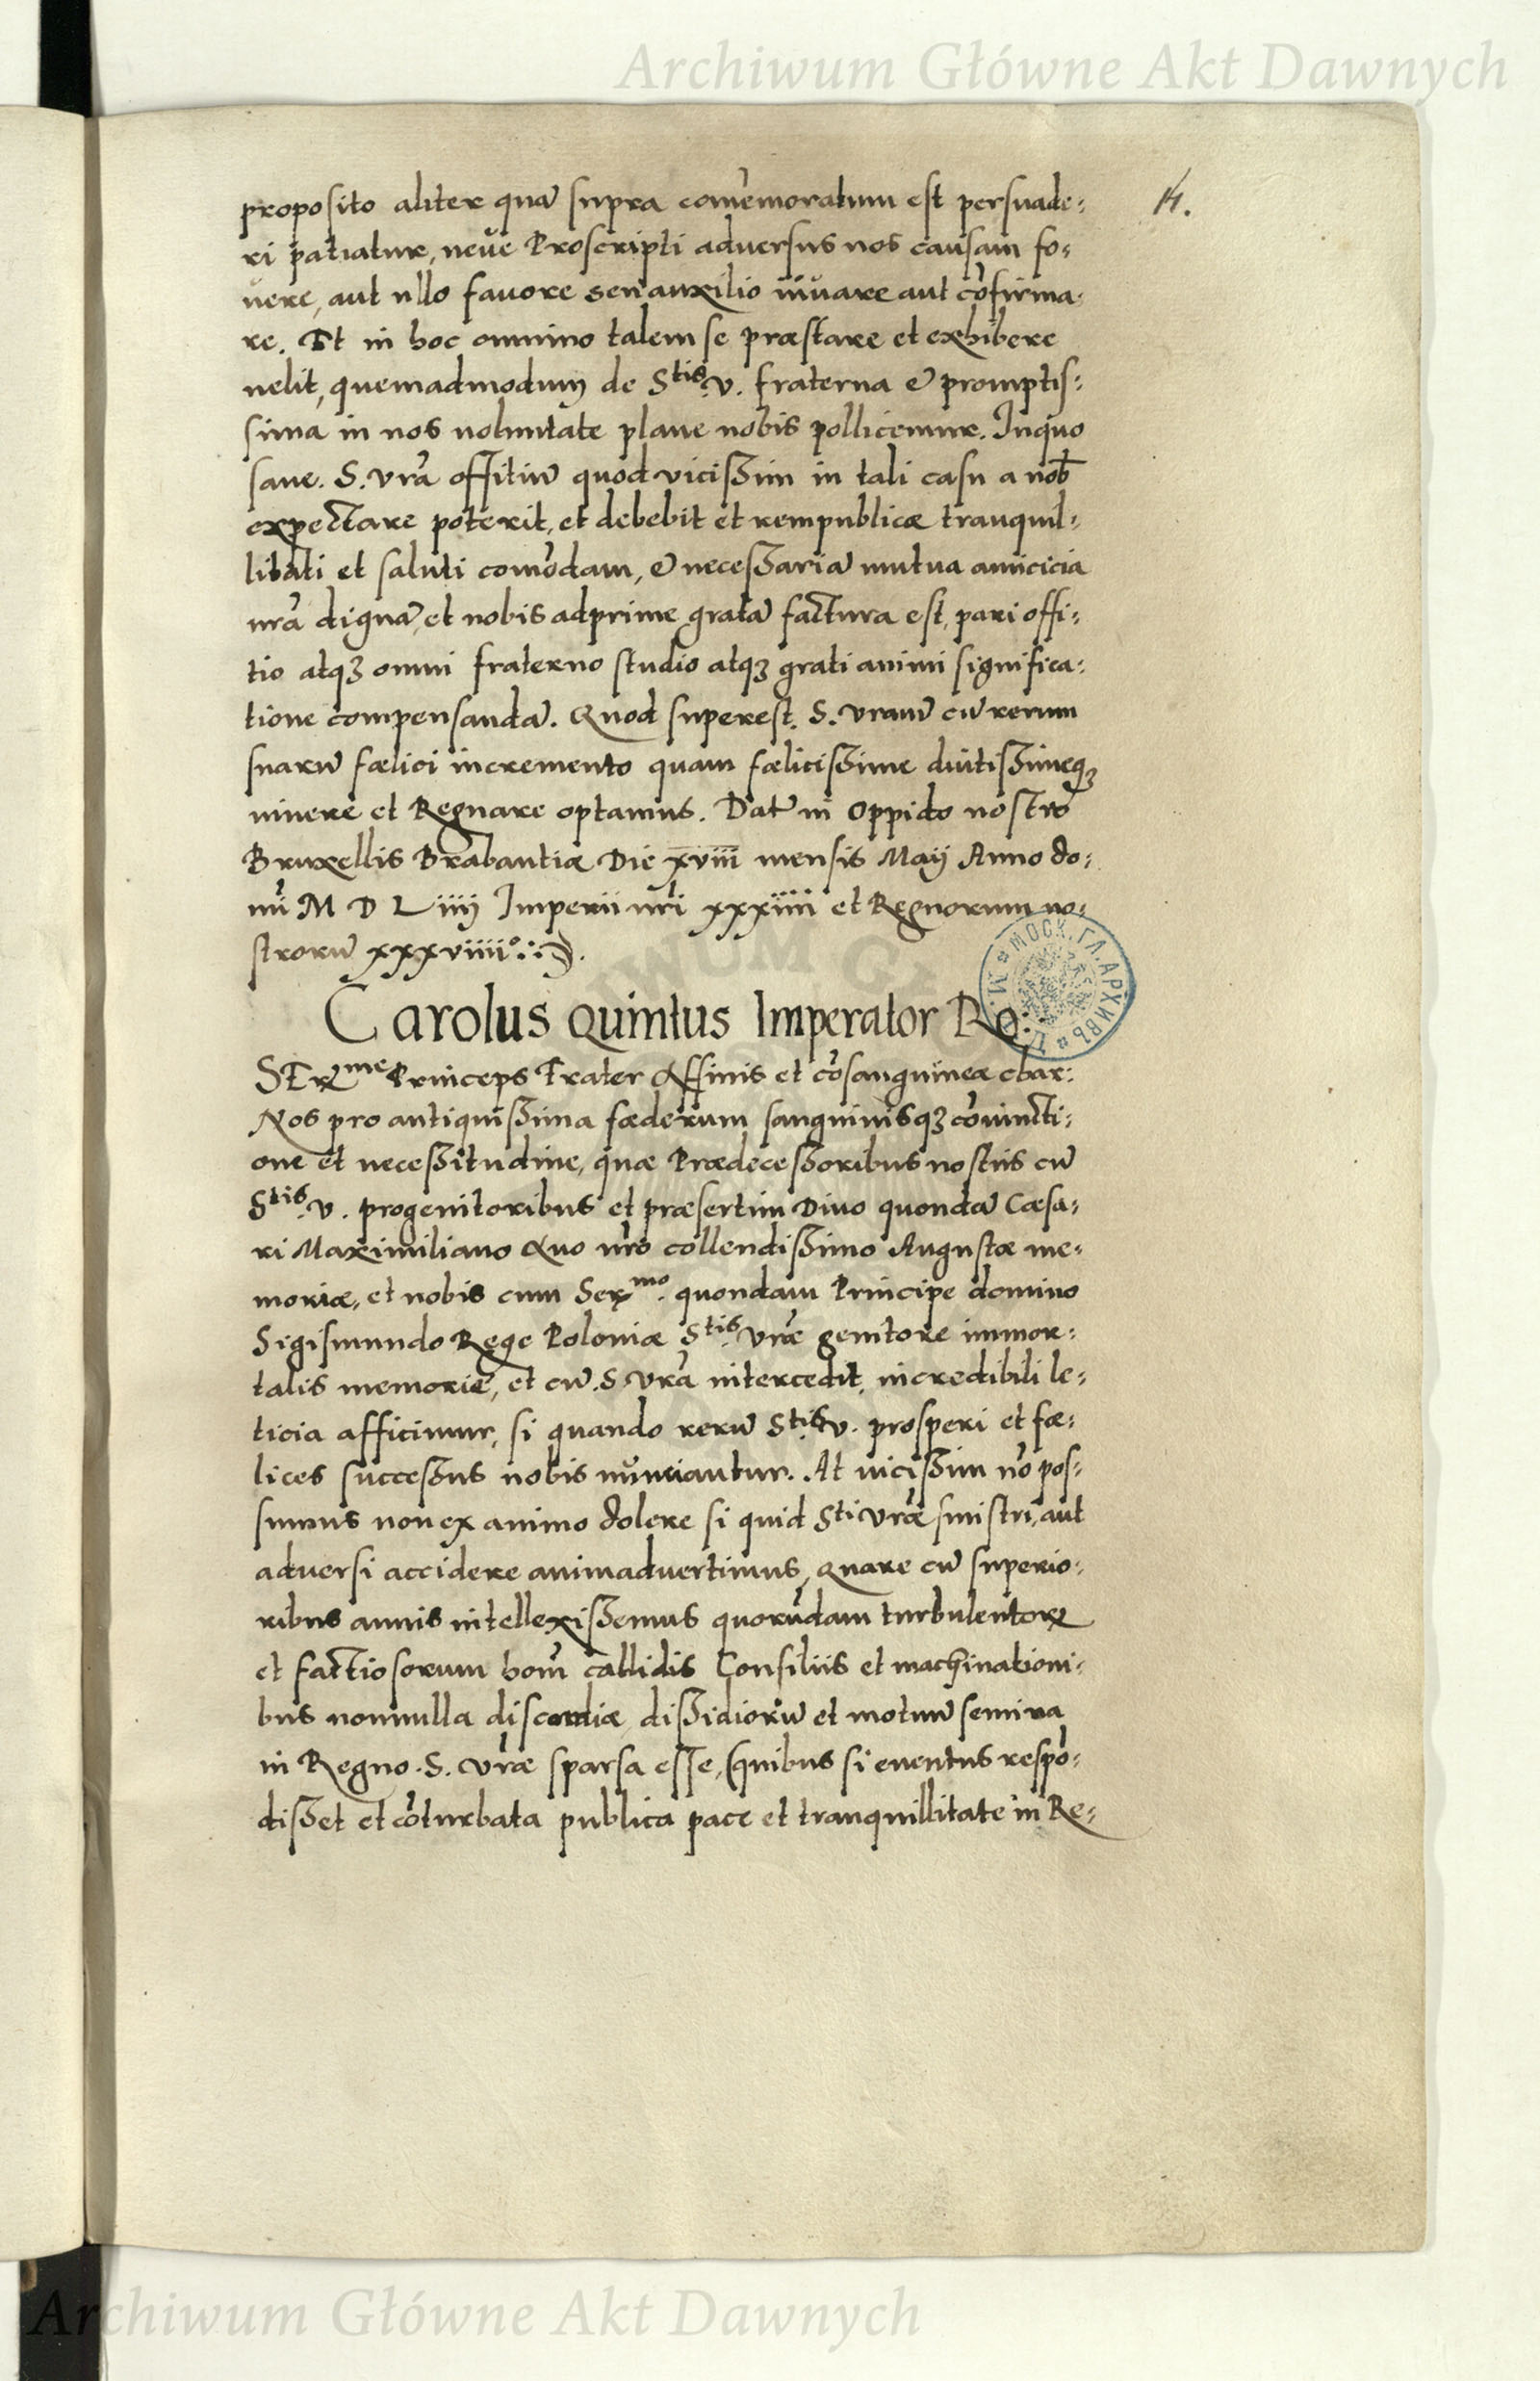 Archiwum Główne Akt Dawnych
14.
proposito aliter quā supra com̄emoratum est persuade:
ri patiatur, neve Proscripti adversus nos causam fo:
vere, aut ullo favore seu auxilio iuvare aut cōfirma:
re. Et in hoc omnino talem se præstare et exhibere
uelit, quemadmodum de Stis. v. fraterna et promptis:
sima in nos uoluntate plane nobis pollicemur. In quo
sane. S. vrā offitiū quod vicissim in tali casu a nob̄
expectare poterit, et debebit et reipublicæ tranquil:
litati et saluti com̄odam, et necessariā mutua amicicia
nrā dignā, et nobis adprime gratā factura est, pari offi:
tio atqꝫ omni fraterno studio atqꝫ grati animi significa:
tione compensandā. Quod superest. S. vram̄ cū rerum
suarū fœlici incremento quam fœlicissime diutissimeqꝫ
vivere et Regnare optamus. Dat̄ in Oppido nostro
Bruxellis Brabantiæ Die xviii mensis Maij Anno do:
mī M D L iiij Imperii nr̄i xxxiiii et Regnorum no:
strorū xxxviiii°
Carolus Quintus Imperator Ro:
SErme Princeps Frater Affinis et cōsanguinee char:
Nos pro antiquissima fœderum sanguinisqꝫ cōiuncti:
one et necessitudine, quæ Prædecessoribus nostris cū
Stis. v. progenitoribus et præsertim Divo quondā Cæsa:
ri Maximiliano Avo nr̄o collendissimo Augustæ me:
moriæ, et nobis cum Sermo. quondam Principe domino
Sigismundo Rege Poloniæ Stis. vræ genitore immor:
talis memorie, et cū. S. vrā intercedit, incredibili le:
ticia afficimur, si quando rerū Stis v. prosperi et fœ:
lices successus nobis nunciantur. At vicissim nō pos:
sumus non ex animo dolere si quid Sti vræ sinistri, aut
adversi accidere animadvertimus, Quare cū superio:
ribus annis intellexissemus quorūdam turbulentoꝝ
et factiosorum hom̄ callidis Consiliis et machinationi:
bus nonnulla discordiæ dissidiorū et motuū semina
in Regno. S. vræ sparsa esse, (quibus si eventus respō:
disset et cōturbata publica pace et tranquillitate in Re:
МОСК. ГЛ. АРХИВЪ
Archiwum Główne Akt Dawnych